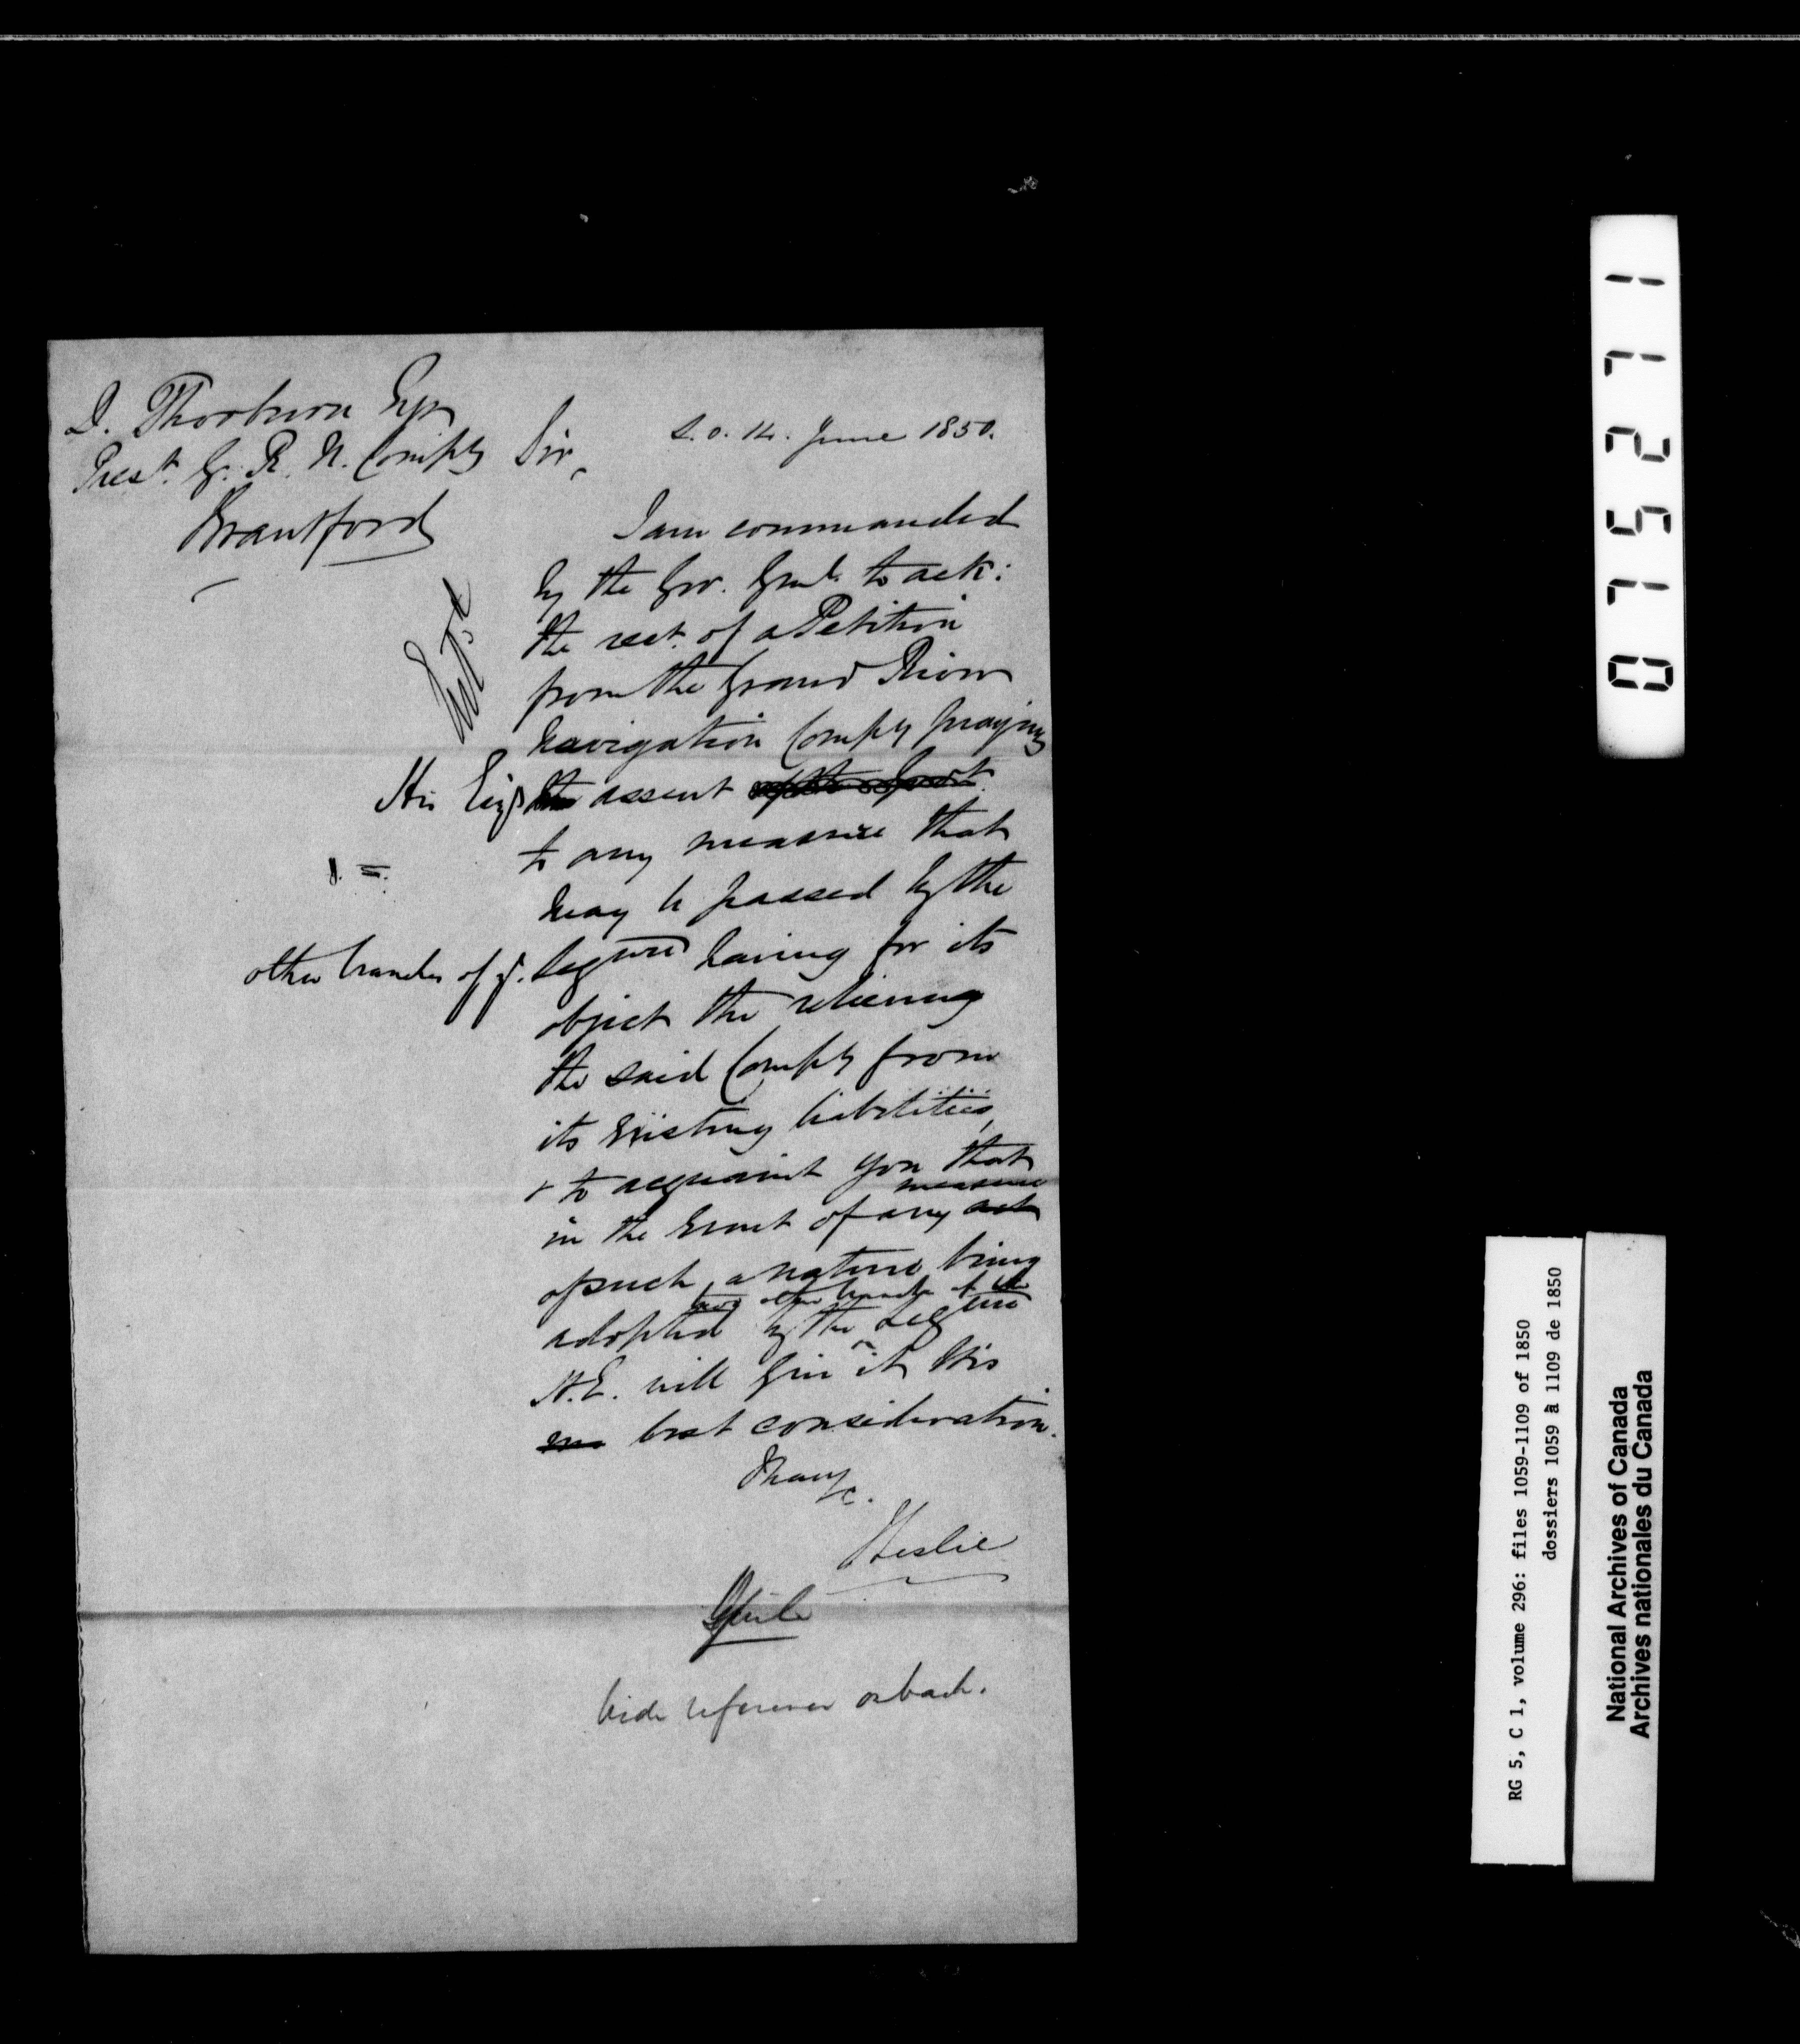 D. Thorburn Esqr
Prest. G. R. N. Compy
Brantford
S.O. 14. June 1850.
Sir,
I am commanded
by the Gov. Genl. to ack:
the rect. of a Petition
from the Grand River
Navigation Compy praying
His assent of the Govt.
to any measure that
may be passed by the
other branches of ye. Legture having for its
object the relieving
the said Compy from
its existing liabilities,
& to acquaint you that
in the event of any act
measure
of such a nature being
two other branches of the
adopted by the Legture
H.E. will give it His
best consideration.
I have
&c.
JLeslie
vide reference on back.
071527 1
RG 5, C 1, volume 296: files 1059-1109 of 1850
dossiers 1059 à 1109 de 1850
National Archives of Canada
Archives nationales du Canada